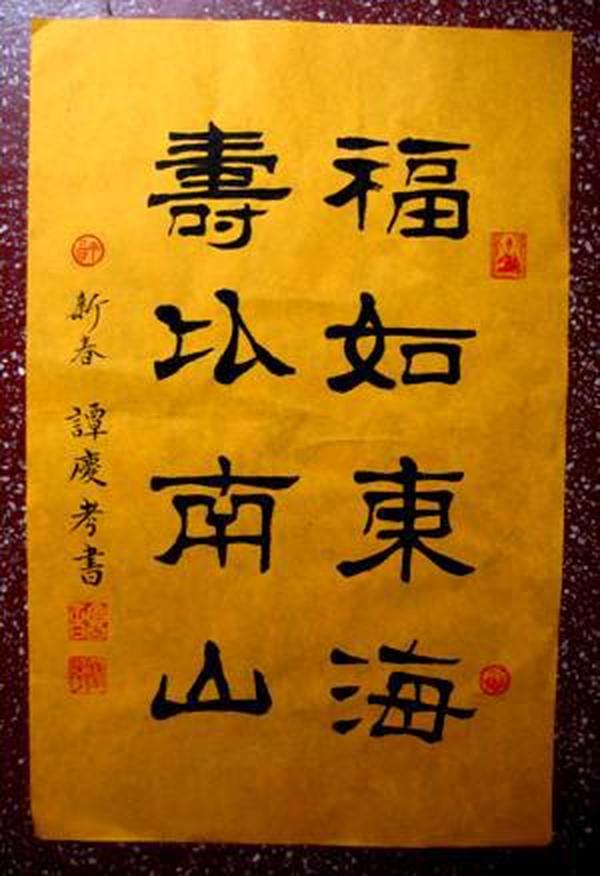 福如東海
壽比南山
新春 譚慶考書